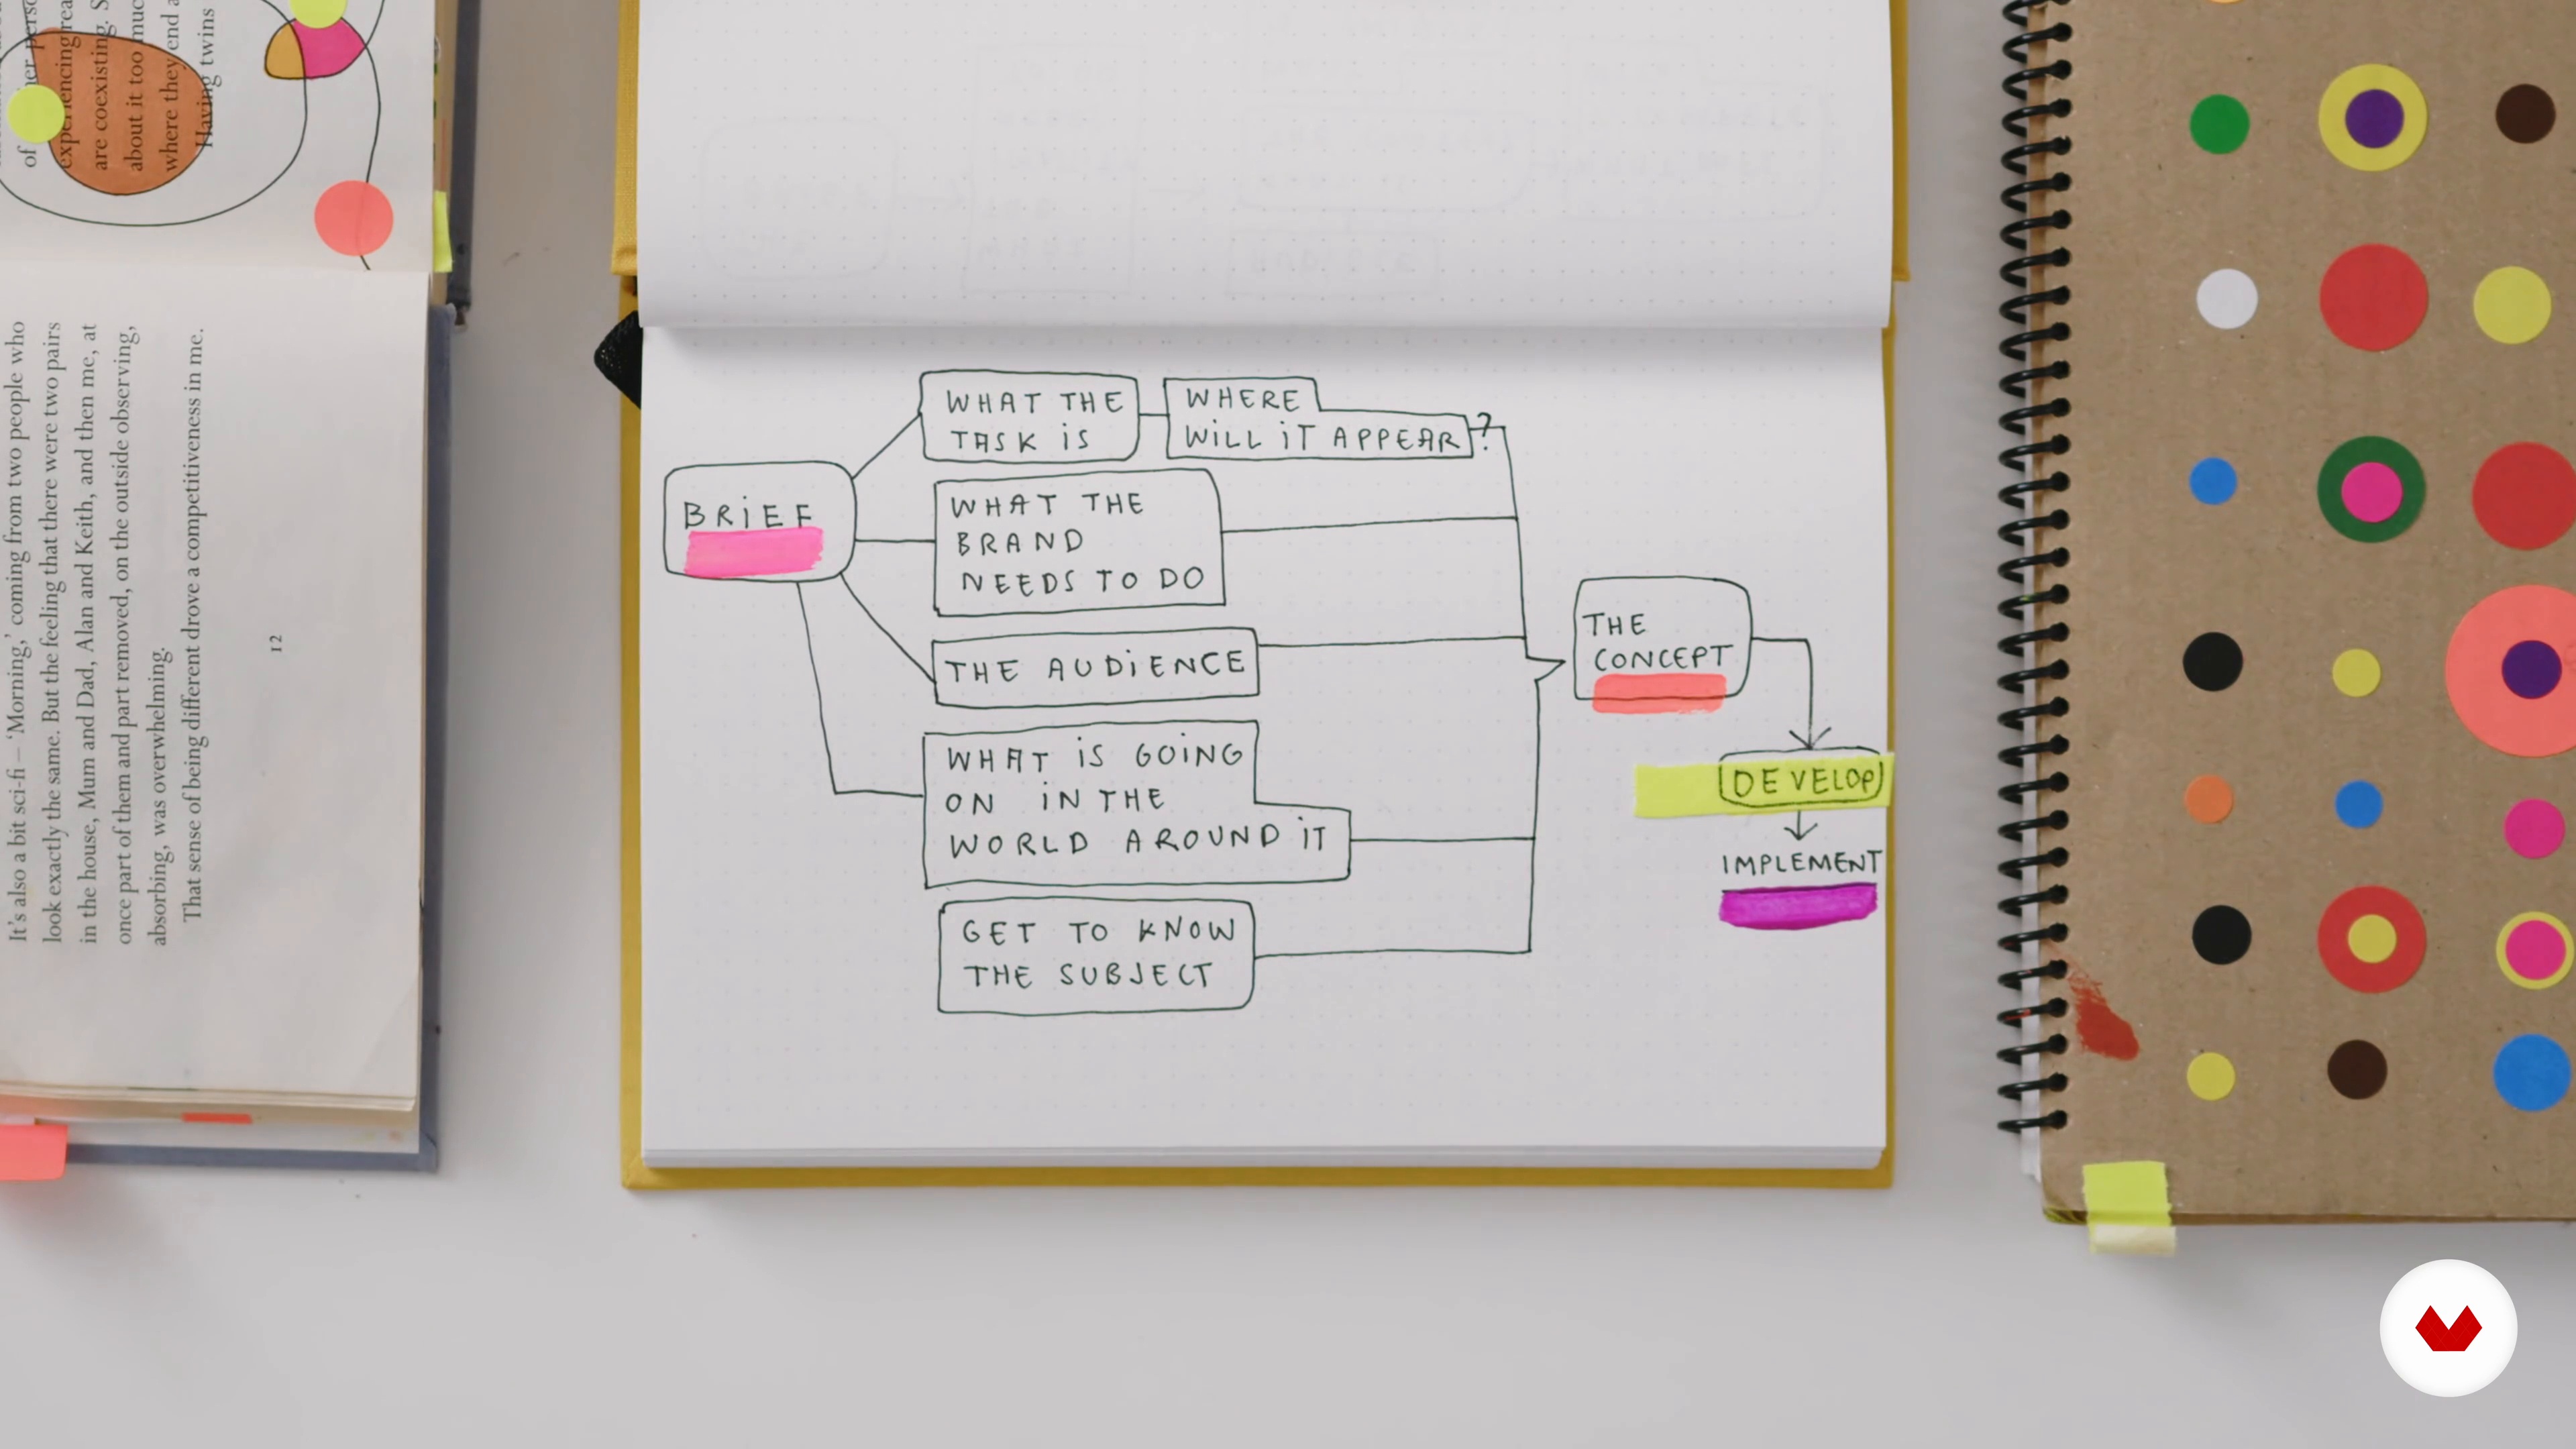 of her
experiencing rea
are coexisting. S
about it too muc
where they end a
Having twins
It's also a bit sci-fi – 'Morning,' coming from two people who
look exactly the same. But the feeling that there were two pairs
in the house, Mum and Dad, Alan and Keith, and then me, at
once part of them and part removed, on the outside observing,
absorbing, was overwhelming.
That sense of being different drove a competitiveness in me.
12
BRiEF
WHAT THE
TASK iS
WHERE
WiLL iT APPEAR ?
WHAT THE
BRAND
NEEDS TO DO
THE AUDiENCE
WHAT iS GOiNG
ON iN THE
WORLD AROUND iT
GET TO KNOW
THE SUBJECT
THE
CONCEPT
DEVELOP
IMPLEMENT